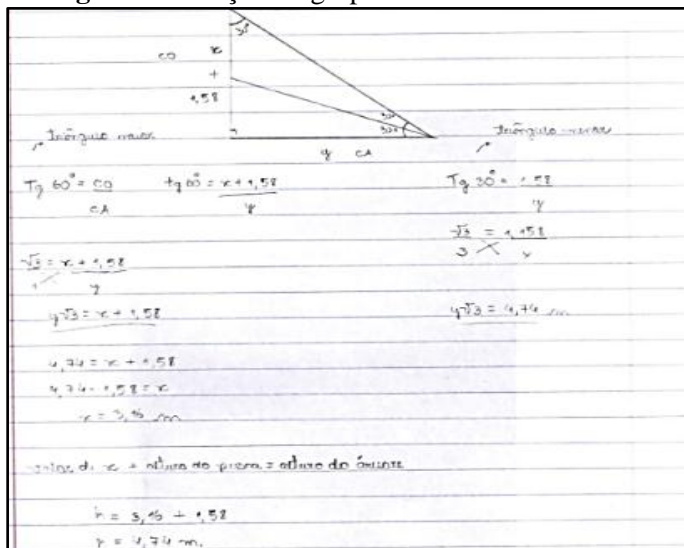 30°
x
CO
+
1,58
30°
30°
triângulo maior
triângulo menor
y CA
Tg 60° = CO
CA
tg 60° = x + 1,58
y
Tg 30° = 1,58
y
√3 = 1,58
3 y
√3 = x + 1,58
1 y
y√3 = x + 1,58
y√3 = 4,74 m
4,74 = x + 1,58
4,74 - 1,58 = x
x = 3,16 m
de x + altura da pessoa = altura da árvore
h = 3,16 + 1,58
h = 4,74 m.